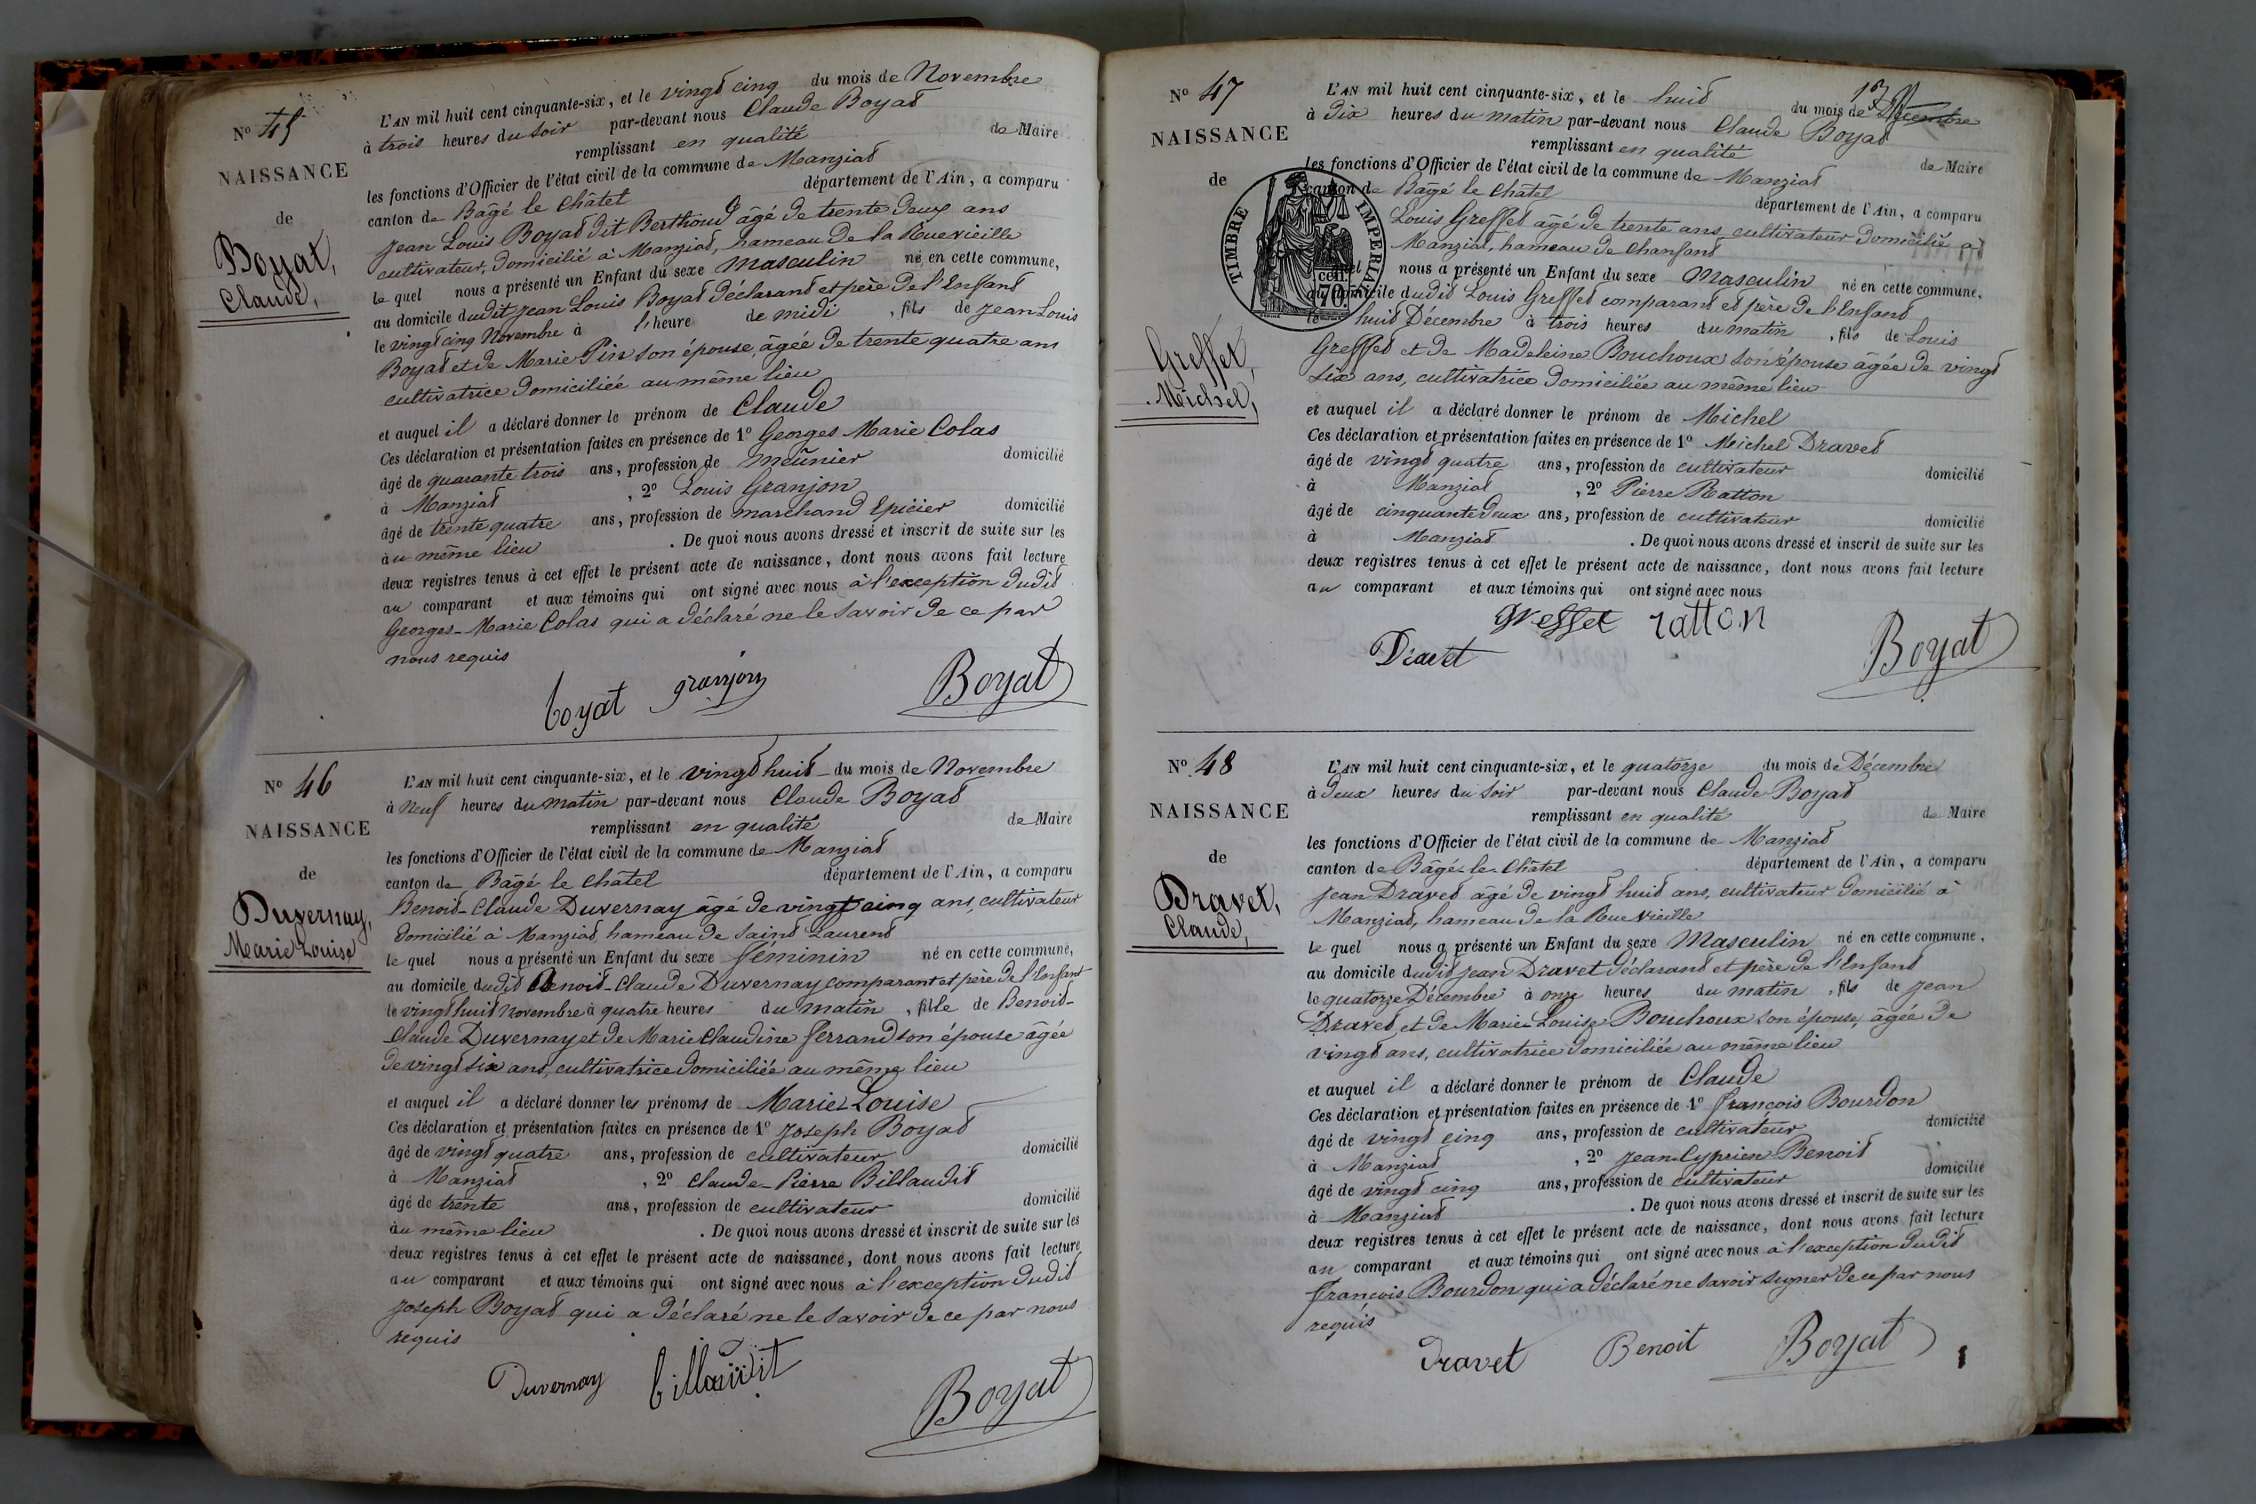 N.º 45
NAISSANCE
de
Boyat,
Claude,
L'AN mil huit cent cinquante-six, et le vingt cinq du mois de Novembre
à trois heures du soir par-devant nous Claude Boyat
remplissant en qualité de Maire
les fonctions d'Officier de l'état civil de la commune de Manziat
canton de Bâgé le Châtel département de l'Ain, a comparu
Jean Louis Boyat dit Berthoud âgé de trente deux ans
cultivateur, domicilié à Manziat, hameau de la Ruevieille
le quel nous a présenté un Enfant du sexe Masculin né en cette commune,
au domicile dudit Jean Louis Boyat déclarant et père de l'Enfant
le vingt cinq Novembre à l'heure de midi, fils de Jean Louis
Boyat et de Marie Pin son épouse, âgée de trente quatre ans
cultivatrice domiciliée au même lieu
et auquel il a déclaré donner le prénom de Claude
Ces déclaration et présentation faites en présence de 1º Georges Marie Colas
âgé de quarante trois ans, profession de meûnier domicilié
à Manziat, 2º Louis Granjon
âgé de trente quatre ans, profession de marchand Epicier domicilié
àu même lieu. De quoi nous avons dressé et inscrit de suite sur les
deux registres tenus à cet effet le présent acte de naissance, dont nous avons fait lecture
au comparant et aux témoins qui ont signé avec nous à l'exception dudit
Georges-Marie Colas qui a déclaré ne le savoir de ce par
nous requis
boyat granjon Boyat
N.º 46
NAISSANCE
de
Duvernay,
Marie Louise
L'AN mil huit cent cinquante-six, et le vingt huit du mois de Novembre
à Neuf heures du matin par-devant nous Claude Boyat
remplissant en qualité de Maire
les fonctions d'Officier de l'état civil de la commune de Manziat
canton de Bâgé le Châtel département de l'Ain, a comparu
Benoit-Claude Duvernay âgé de vingt cinq ans, cultivateur
domicilié à Manziat, hameau de Saint Laurent
le quel nous a présenté un Enfant du sexe féminin né en cette commune,
au domicile dudit Benoit-Claude Duvernay comparant et père de l'Enfant
le vingt huit Novembre à quatre heures du matin, fille de Benoit-
Claude Duvernay et de Marie Claudine Ferrand son épouse âgée
de vingt six ans, cultivatrice domiciliée au même lieu
et auquel il a déclaré donner les prénoms de Marie Louise
Ces déclaration et présentation faites en présence de 1º Joseph Boyat
âgé de vingt quatre ans, profession de cultivateur domicilié
à Manziat, 2º Claude-Pierre Billaudit
âgé de trente ans, profession de cultivateur domicilié
àu même lieu. De quoi nous avons dressé et inscrit de suite sur les
deux registres tenus à cet effet le présent acte de naissance, dont nous avons fait lecture
au comparant et aux témoins qui ont signé avec nous à l'exception dudit
Joseph Boyat qui a déclaré ne le savoir de ce par nous
requis
Duvernay billaudit
Boyat
N.º 47
NAISSANCE
de
TIMBRE IMPERIAL
70 cen.
Greffet,
Michel,
L'AN mil huit cent cinquante-six, et le huit du mois de Décembre
à dix heures du matin par-devant nous Claude Boyat
remplissant en qualité de Maire
les fonctions d'Officier de l'état civil de la commune de Manziat
canton de Bâgé le Châtel département de l'Ain, a comparu
Louis Greffet âgé de trente ans, cultivateur domicilié à
Manziat, hameau de Chanfant
quel nous a présenté un Enfant du sexe Masculin né en cette commune.
au domicile dudit Louis Greffet comparant et père de l'Enfant
le huit Décembre à trois heures du matin, fils de Louis
Greffet et de Madeleine Bouchoux son épouse âgée de vingt
six ans, cultivatrice domiciliée au même lieu
et auquel il a déclaré donner le prénom de Michel
Ces déclaration et présentation faites en présence de 1º Michel Dravet
âgé de vingt quatre ans, profession de cultivateur domicilié
à Manziat, 2º Pierre Ratton
âgé de cinquante deux ans, profession de cultivateur domicilié
à Manziat. De quoi nous avons dressé et inscrit de suite sur les
deux registres tenus à cet effet le présent acte de naissance, dont nous avons fait lecture
au comparant et aux témoins qui ont signé avec nous
Greffet ratton
Dravet Boyat
N.º 48
NAISSANCE
de
Dravet,
Claude,
L'AN mil huit cent cinquante-six, et le quatorze du mois de Décembre
à deux heures du soir par-devant nous Claude Boyat
remplissant en qualité de Maire
les fonctions d'Officier de l'état civil de la commune de Manziat
canton de Bâgé-le-Châtel département de l'Ain, a comparu
Jean Dravet âgé de vingt huit ans, cultivateur domicilié à
Manziat, hameau de la Rue Vieille
le quel nous a présenté un Enfant du sexe Masculin né en cette commune.
au domicile dudit Jean Dravet déclarant et père de l'Enfant
le quatorze Décembre à onze heures du matin, fils de Jean
Dravet, et de Marie-Louise Bouchoux son épouse, âgée de
vingt ans, cultivatrice domiciliée au même lieu
et auquel il a déclaré donner le prénom de Claude
Ces déclaration et présentation faites en présence de 1º François Bourdon
âgé de vingt cinq ans, profession de cultivateur domicilié
à Manziat, 2º Jean-Cyprien Benoit
âgé de vingt cinq ans, profession de cultivateur domicilié
à Manziat. De quoi nous avons dressé et inscrit de suite sur les
deux registres tenus à cet effet le présent acte de naissance, dont nous avons fait lecture
au comparant et aux témoins qui ont signé avec nous à l'exception dudit
François Bourdon qui a déclaré ne savoir signer de ce par nous
requis
Dravet Benoit Boyat